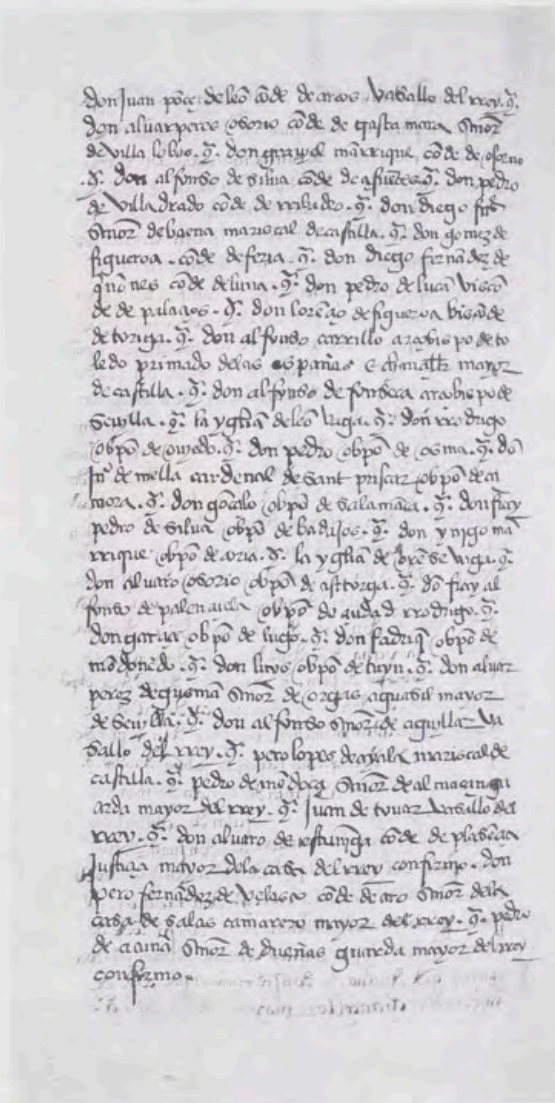 don Juan põçe de leõ cõde de arcos Vasallo del rrey. q̃.
don aluar peres osorio cõde de trasta mara Señor
de villa lobos. q̃. don grauiel mãrrique cõde de osorno
. q̃. don alfonso de silua cõde de çifuẽtes. q̃. don pedro
de Villadrado cõde de rribadeo. q̃. don diego frrs
Señor de baena mariscal de castilla. q̃. don gomez de
figueroa. cõde de feria. q̃. don diego fernãdez de
quiñones cõde de luna. q̃. don pedro de luçã viscõ
de de palaçios. q̃. don lorẽço de figueroa viscõde
de torija. q̃. don alfonso carrillo arçobispo de to
ledo primado delas españas e chãçiller mayor
de castilla. q̃. don alfonso de fonseca arçobispo de
Seuylla. q̃. la yglia de leõ Vaga. q̃. don rrodrigo
obpõ de ouiedo. q̃. don pedro obpõ de osma. q̃. dõ
Juº de mella cardenal de Sant priscaz obpõ de ça
mora. q̃. don gõçalo obpõ de salamãca. q̃. don fray
pedro de silua obpõ de badajos. q̃. don ynigo mã
rrique obpõ de coria. q̃. la yglia de orẽse Vaga. q̃.
don aluaro osorio obpõ de asttorga. q̃. dõ fray al
fonso de palençuela obpõ de çiudad rrodrigo. q̃.
don garçia obpõ de lugo. q̃. don fadriq̃ obpõ de
mõdoñedo. q̃. don luyos obpõ de tuyn. q̃. don aluar
perez de gusmã Señor de orgas aguasil mayor
de Seuilla. q̃. don alfonso Señor de aguillar Va
Sallo del rrey. q̃. pero lopes de ayala mariscal de
castilla. q̃. pedro de mẽdoça Señor de almaçã gu
arda mayor del rrey. q̃. Juan de touar Vasallo del
rrey. q̃. don aluaro de estuniga cõde de plasẽçia
Justiçia mayor dela casa del rrey confirmo. don
pero fernãdez de Velasco cõde de aro Señor dela
casa de salas camarero mayor del rrey. q̃. pedro
de acunã Señor de dueñas guarda mayor del rrey
confirmo.